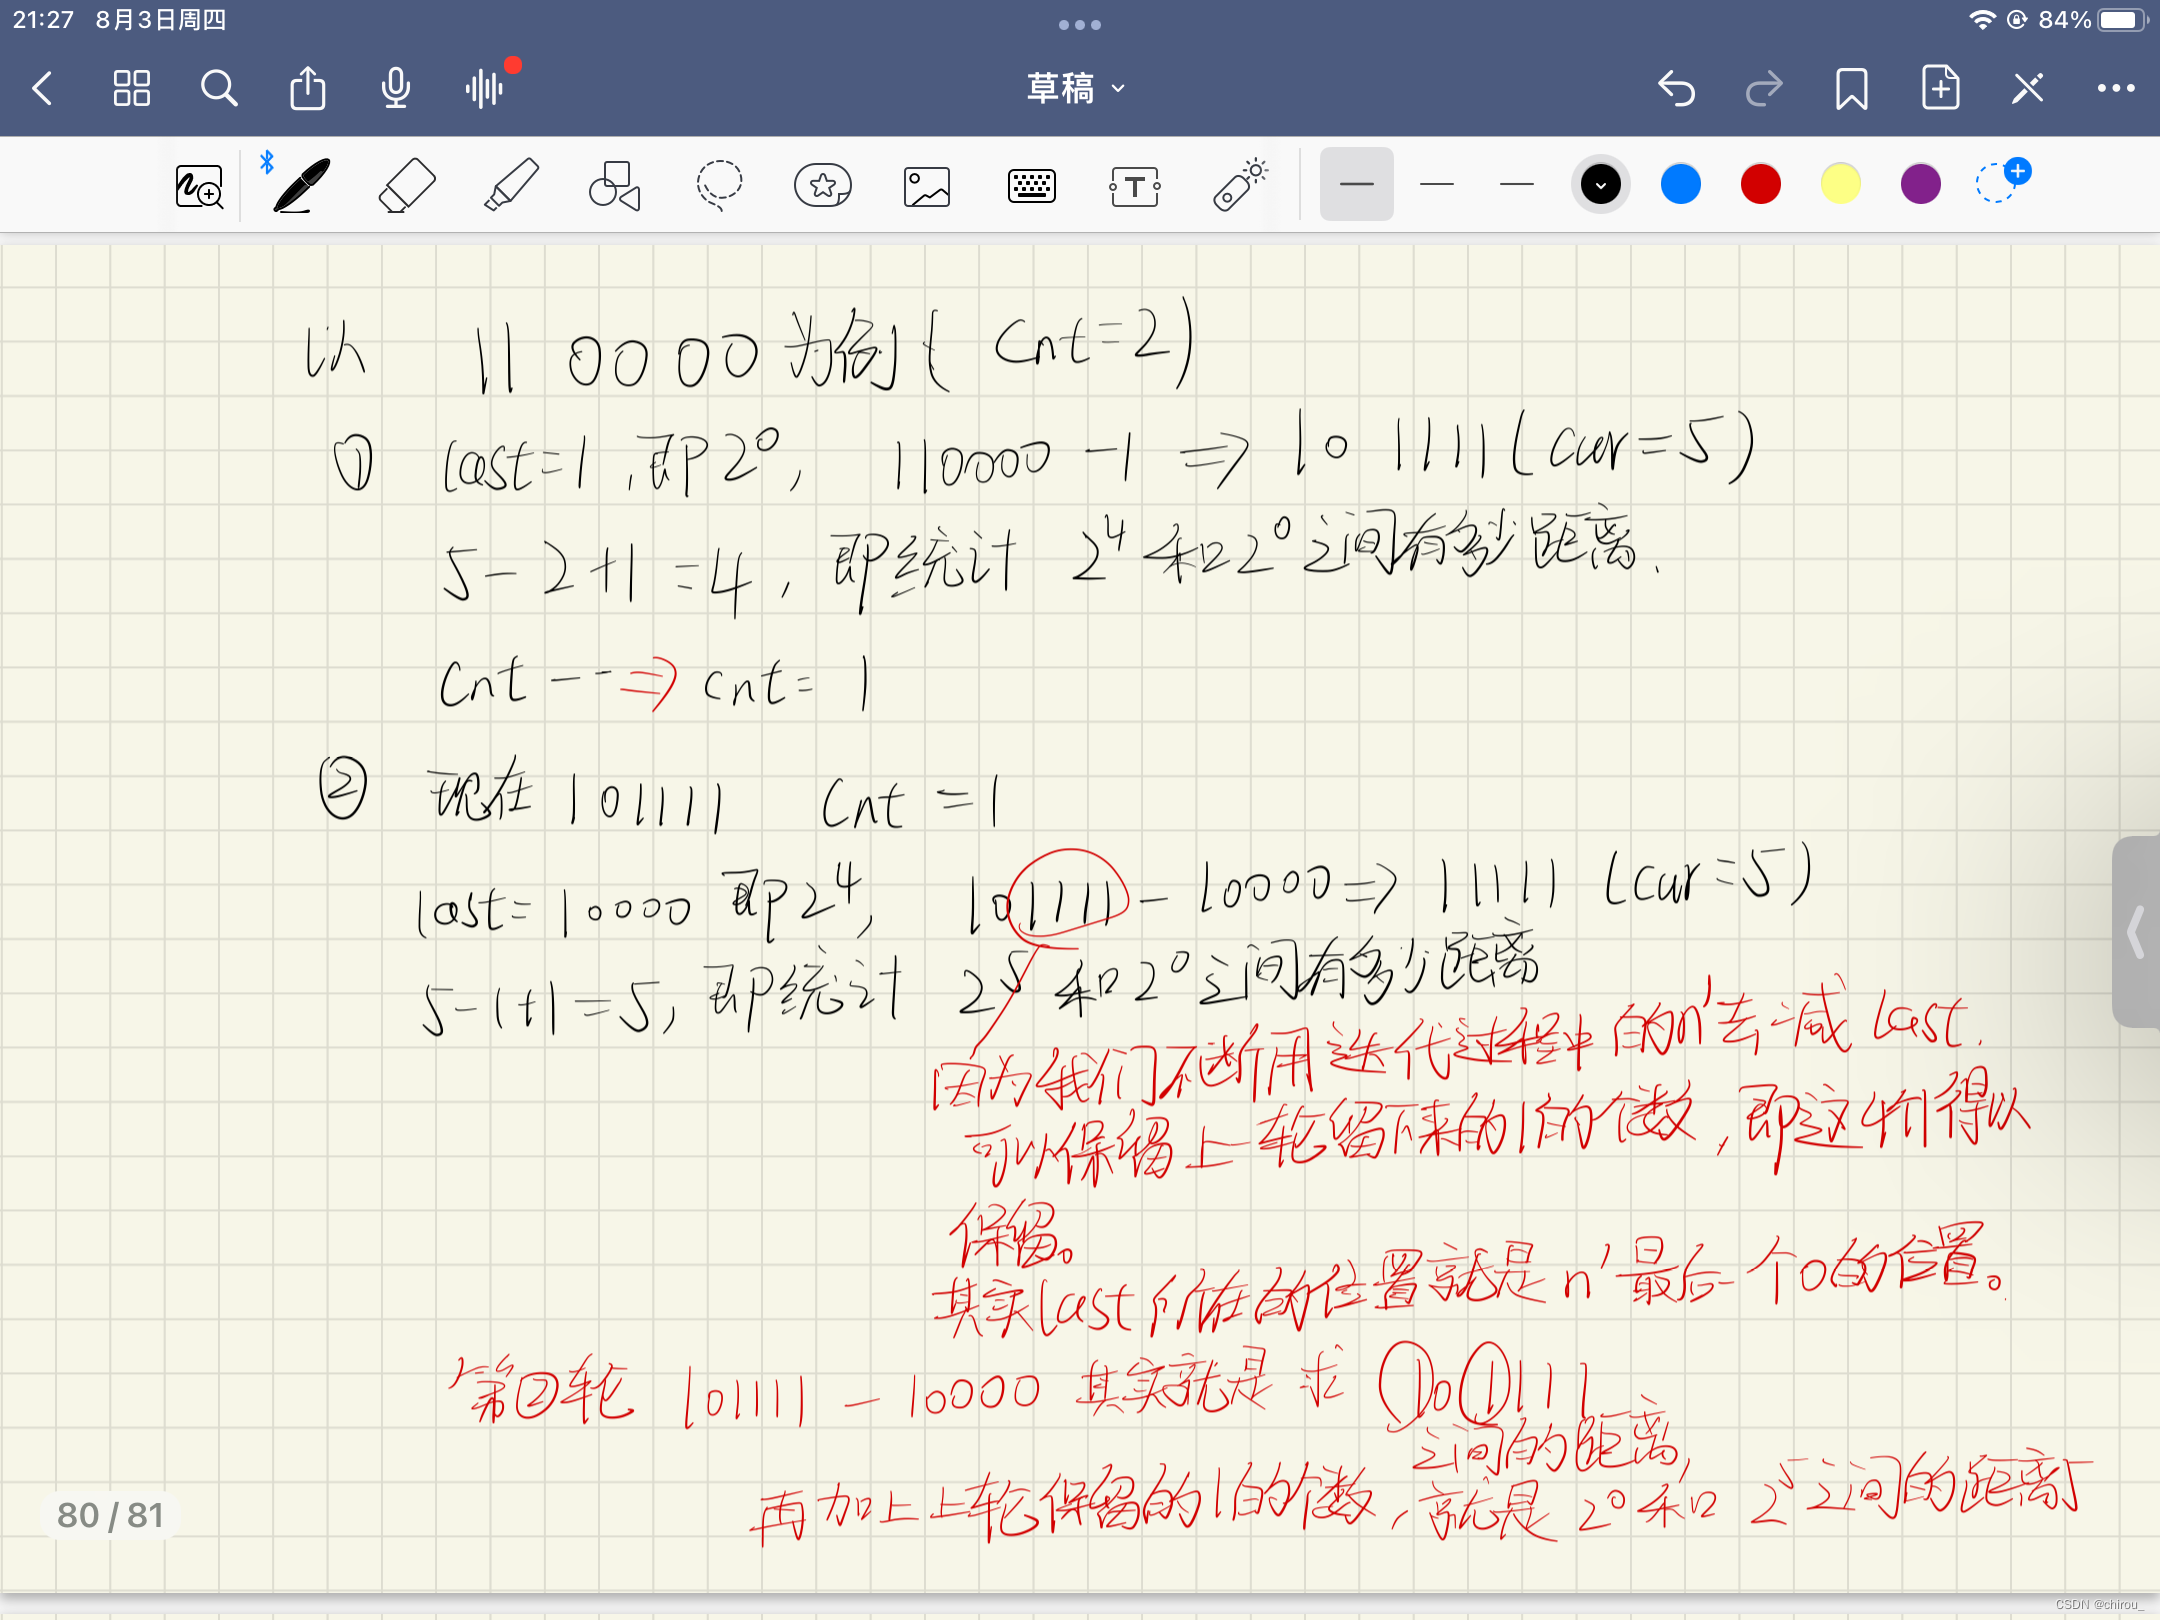 21:27 8月3日周四
84%
草稿
以 110000为例(cnt=2)
① last=1,即2⁰, 110000-1⇒101111(cur=5)
5-2+1=4,即统计 2⁴和2⁰之间有多少距离.
cnt--⇒cnt=1
② 现在101111 cnt=1
last=10000即2⁴, 101111-10000⇒11111(cur=5)
5-1+1=5,即统计 2⁵和2⁰之间有多少距离
因为我们不断用迭代过程中的n'去减last.
可以保留上一轮留下来的1的个数,即这4个1得以
保留。
其实last所在的位置就是n'最后一个0的位置。
第②轮 101111-10000其实就是求101111
之间的距离,
再加上上轮保留的1的个数,就是2⁰和2⁵之间的距离5
80 / 81
CSDN @chirou_